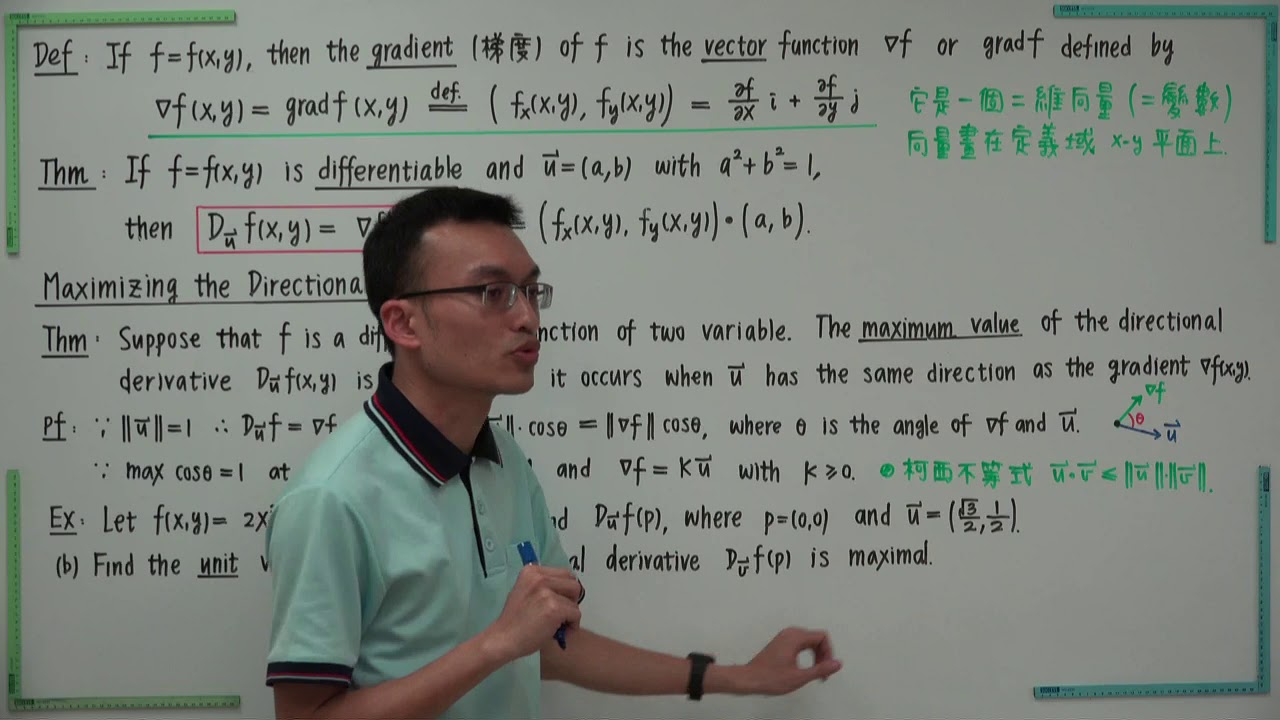 Def: If f=f(x,y), then the gradient (梯度) of f is the vector function ∇f or grad f defined by
∇f(x,y) = grad f(x,y) def. = (fx(x,y), fy(x,y)) = ∂f/∂x i + ∂f/∂y j
它是一個二維向量(二變數)
向量畫在定義域 x-y 平面上.
Thm: If f=f(x,y) is differentiable and u⃗=(a,b) with a²+b²=1,
then D_u⃗ f(x,y) = = (fx(x,y), fy(x,y))•(a,b).
Maximizing the
Thm: Suppose that f is a of two variable. The maximum value of the directional
derivative D_u⃗ f(x,y) is it occurs when u⃗ has the same direction as the gradient ∇f(x,y).
∇f
θ
u⃗
pf: ∵ ‖u⃗‖=1 ∴ D_u⃗ f = ∇f · cosθ = ‖∇f‖ cosθ, where θ is the angle of ∇f and u⃗.
∵ max cosθ=1 at and ∇f = K u⃗ with K≥0. 柯西不等式 u⃗•v⃗ ≤ ‖u⃗‖·‖v⃗‖.
Ex: Let f(x,y)= D_u⃗ f(p), where p=(0,0) and u⃗=(√3/2, 1/2).
(b) Find the unit derivative D_v⃗ f(p) is maximal.